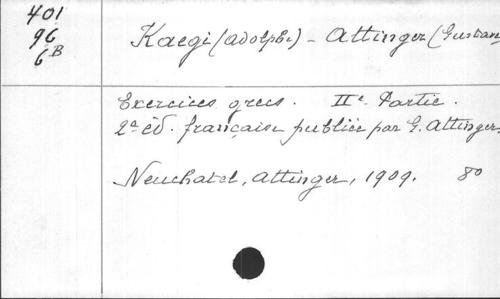 401
96
6B
Kaegi (Adolphe) - Attinger (Gustave
Exercices grecs. IIe Partie.
2a éd. française publiée par G. Attinger.
Neuchatel, Attinger, 1909. 8o